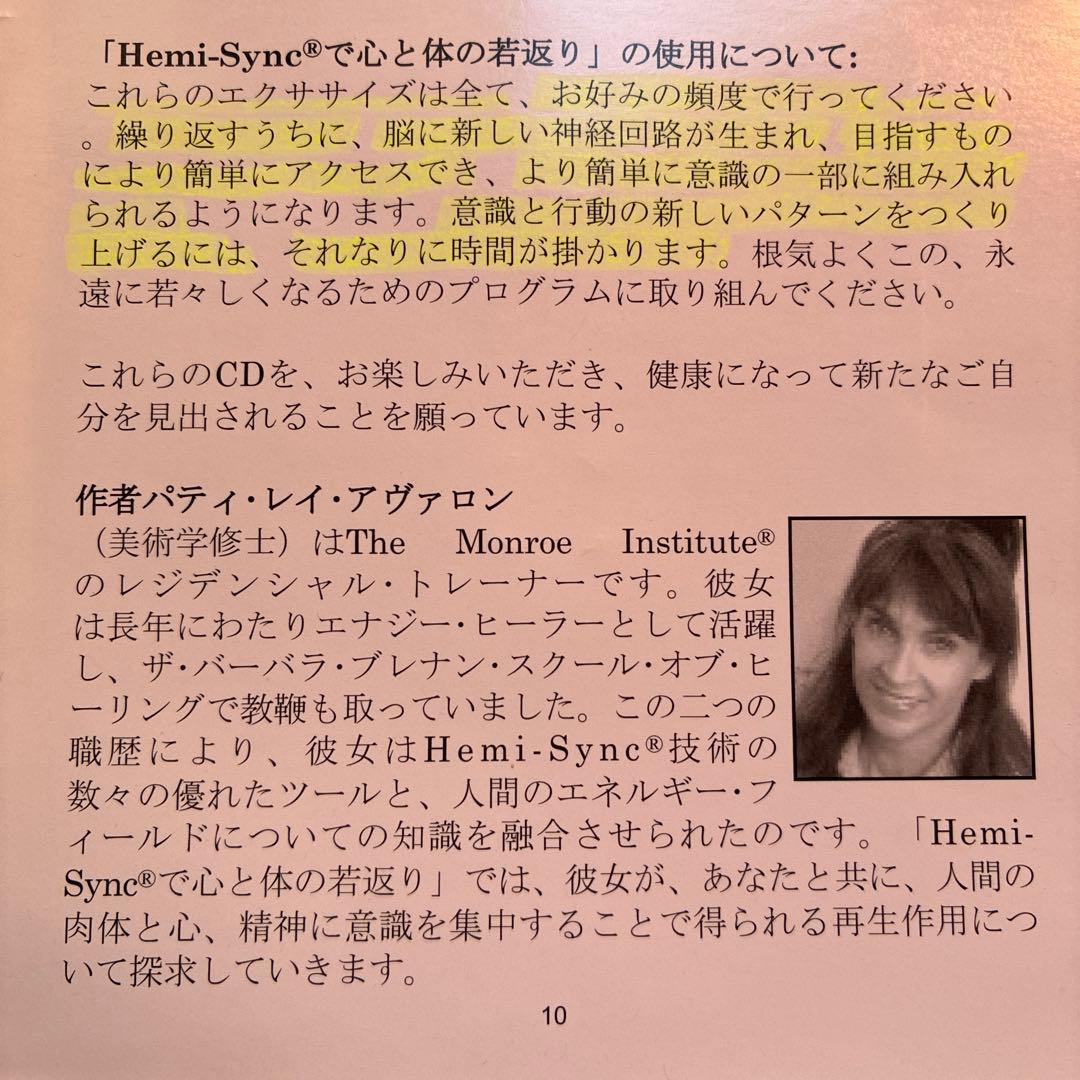 「Hemi-Sync®で心と体の若返り」の使用について:
これらのエクササイズは全て、お好みの頻度で行ってください
。繰り返すうちに、脳に新しい神経回路が生まれ、目指すもの
により簡単にアクセスでき、より簡単に意識の一部に組み入れ
られるようになります。意識と行動の新しいパターンをつくり
上げるには、それなりに時間が掛かります。根気よくこの、永
遠に若々しくなるためのプログラムに取り組んでください。
これらのCDを、お楽しみいただき、健康になって新たなご自
分を見出されることを願っています。
作者パティ・レイ・アヴァロン
（美術学修士）はThe Monroe Institute®
のレジデンシャル・トレーナーです。彼女
は長年にわたりエナジー・ヒーラーとして活躍
し、ザ・バーバラ・ブレナン・スクール・オブ・ヒ
ーリングで教鞭も取っていました。この二つの
職歴により、彼女はHemi-Sync®技術の
数々の優れたツールと、人間のエネルギー・フ
ィールドについての知識を融合させられたのです。「Hemi-
Sync®で心と体の若返り」では、彼女が、あなたと共に、人間の
肉体と心、精神に意識を集中することで得られる再生作用につ
いて探求していきます。
10